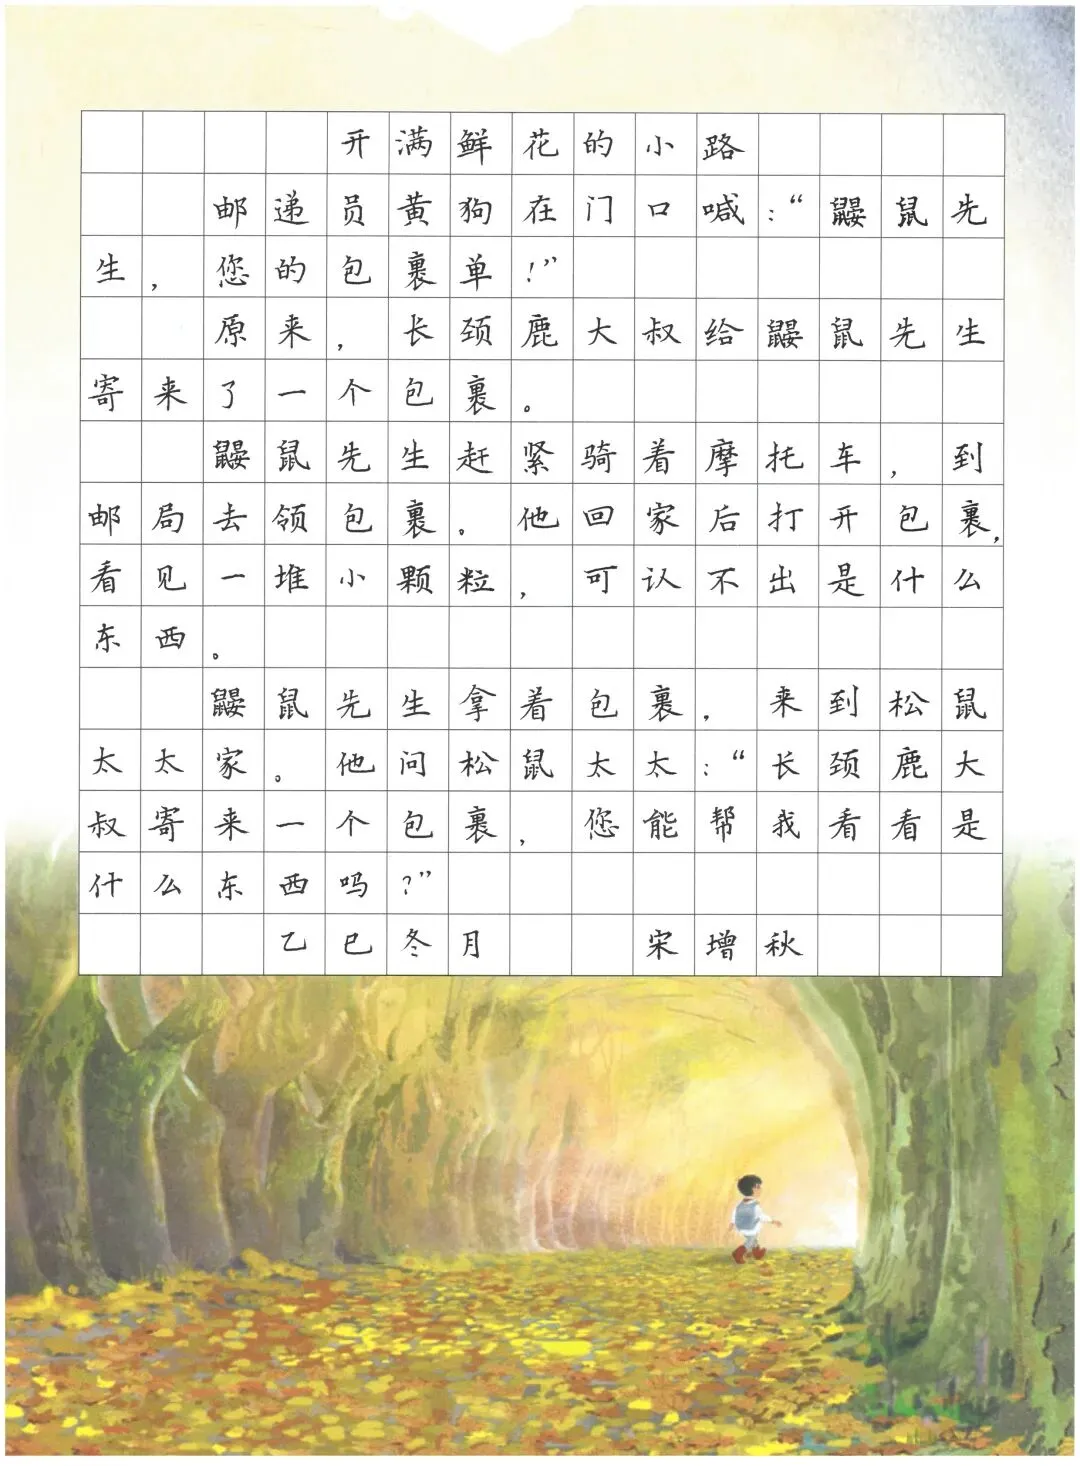 开满鲜花的小路
邮递员黄狗在门口喊：“鼹鼠先
生，您的包裹单！”
原来，长颈鹿大叔给鼹鼠先生
寄来了一个包裹。
鼹鼠先生赶紧骑着摩托车，到
邮局去领包裹。他回家后打开包裹，
看见一堆小颗粒，可认不出是什么
东西。
鼹鼠先生拿着包裹，来到松鼠
太太家。他问松鼠太太：“长颈鹿大
叔寄来一个包裹，您能帮我看看是
什么东西吗？”
乙巳冬月 宋增秋